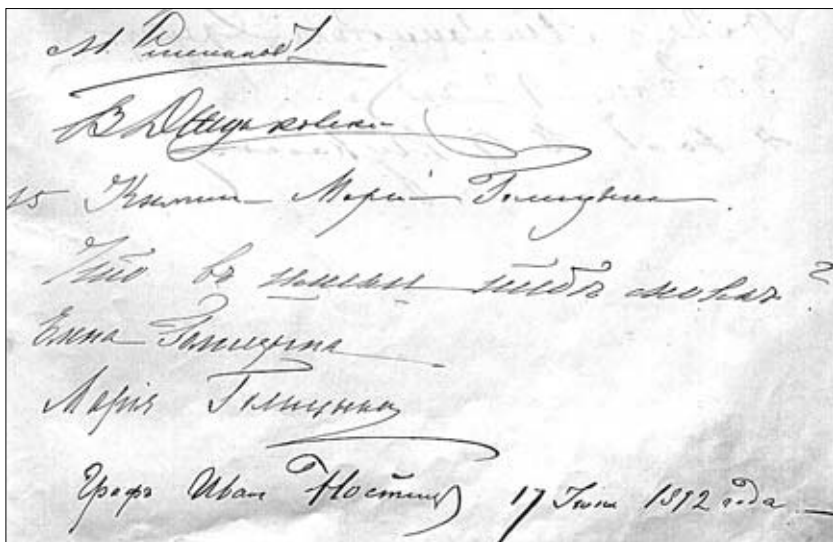 М.
В.
15 Княгиня Марія Голицына.
Что въ имени тебѣ моемъ?
Елена Голицына
Марія Голицына
Графъ Иван Ностиц 17 Іюня 1892 года